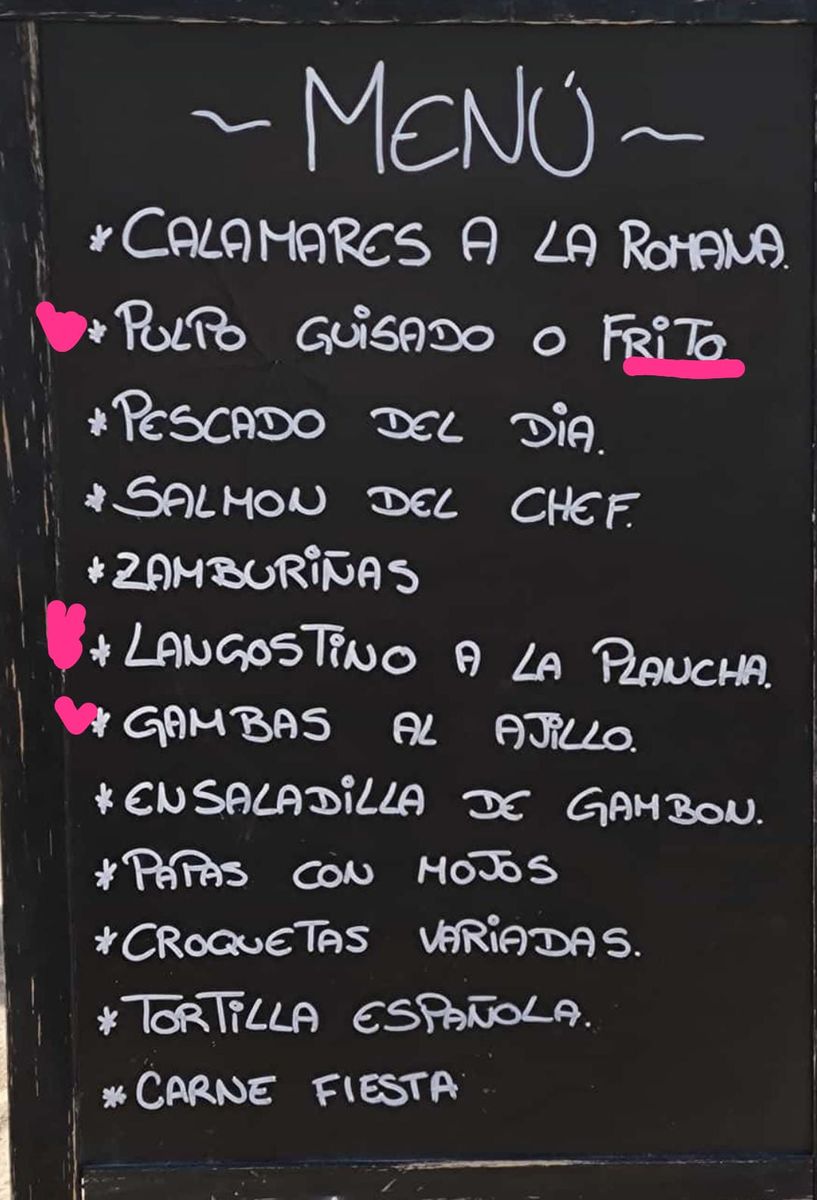 ~ MENÚ ~
* CALAMARES A LA ROMANA.
* PULPO GUISADO O FRITO
* PESCADO DEL DIA.
* SALMON DEL CHEF.
* ZAMBURIÑAS
* LANGOSTINO A LA PLANCHA.
* GAMBAS AL AJILLO.
* ENSALADILLA DE GAMBON.
* PAPAS CON MOJOS
* CROQUETAS VARIADAS.
* TORTILLA ESPAÑOLA.
* CARNE FIESTA